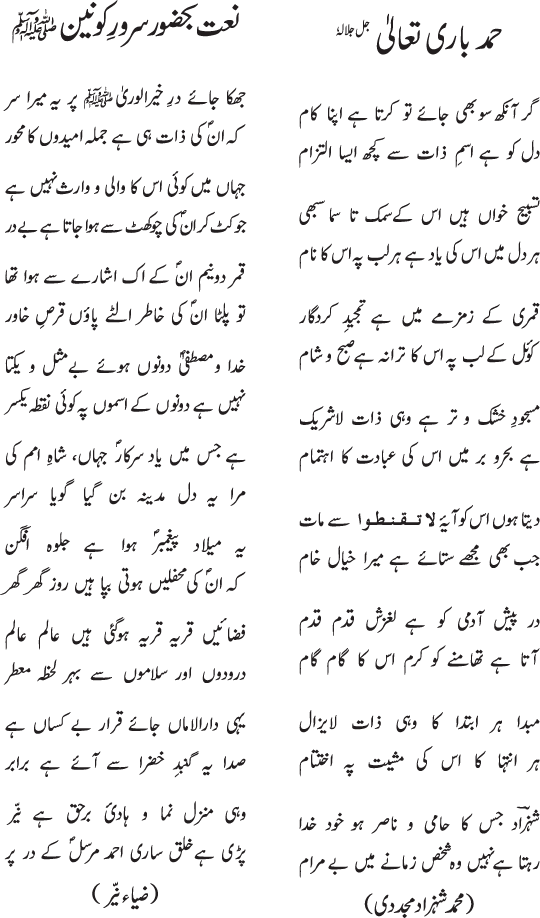 حمد باری تعالیٰ جل جلالہٗ
گر آنکھ سو بھی جائے تو کرتا ہے اپنا کام
دل کو ہے اسمِ ذات سے کچھ ایسا التزام
تسبیح خواں ہیں اس کے سمک تا سما سبھی
ہر دل میں اس کی یاد ہے ہر لب پہ اس کا نام
قمری کے زمزمے میں ہے تمجیدِ کردگار
کوئل کے لب پہ اس کا ترانہ ہے صبح و شام
مسجودِ خشک و تر ہے وہی ذات لاشریک
ہے بحر و بر میں اس کی عبادت کا اہتمام
دیتا ہوں اس کو آیۂ لا تقنطوا سے مات
جب بھی مجھے ستائے ہے میرا خیال خام
در پیش آدمی کو ہے لغزش قدم قدم
آتا ہے تھامنے کو کرم اس کا گام گام
مبدا ہر ابتدا کا وہی ذات لایزال
ہر انتہا کا اس کی مشیت پہ اختتام
شہزاد جس کا حامی و ناصر ہو خود خدا
رہتا ہے نہیں وہ شخص زمانے میں بے مرام
(محمد شہزاد مجددی)
نعت بحضور سرورِ کونین ﷺ
جھکا جائے درِ خیرالوریٰ ﷺ پر یہ میرا سر
کہ انؐ کی ذات ہی ہے جملہ امیدوں کا محور
جہاں میں کوئی اس کا والی و وارث نہیں ہے
جو کٹ کر انؐ کی چوکھٹ سے ہوا جاتا ہے بے در
قمر دو نیم انؐ کے اک اشارے سے ہوا تھا
تو پلٹا انؐ کی خاطر الٹے پاؤں قرصِ خاور
خدا و مصطفیٰؐ دونوں ہوئے بے مثل و یکتا
نہیں ہے دونوں کے اسموں پہ کوئی نقطہ یکسر
ہے جس میں یاد سرکارِؐ جہاں، شاہِ امم کی
مرا یہ دل مدینہ بن گیا گویا سراسر
یہ میلاد پیغمبرؐ ہوا ہے جلوہ افگن
کہ انؐ کی محفلیں ہوتی بپا ہیں روز گھر گھر
فضائیں قریہ قریہ ہوگئی ہیں عالم عالم
درودوں اور سلاموں سے بہر لحظہ معطر
یہی دارالاماں جائے قرار بے کساں ہے
صدا یہ گنبدِ خضرا سے آئے ہے برابر
وہی منزل نما و ہادیٔ برحق ہے نیّر
پڑی ہے خلق ساری احمد مرسلؐ کے در پر
(ضیاء نیّر)